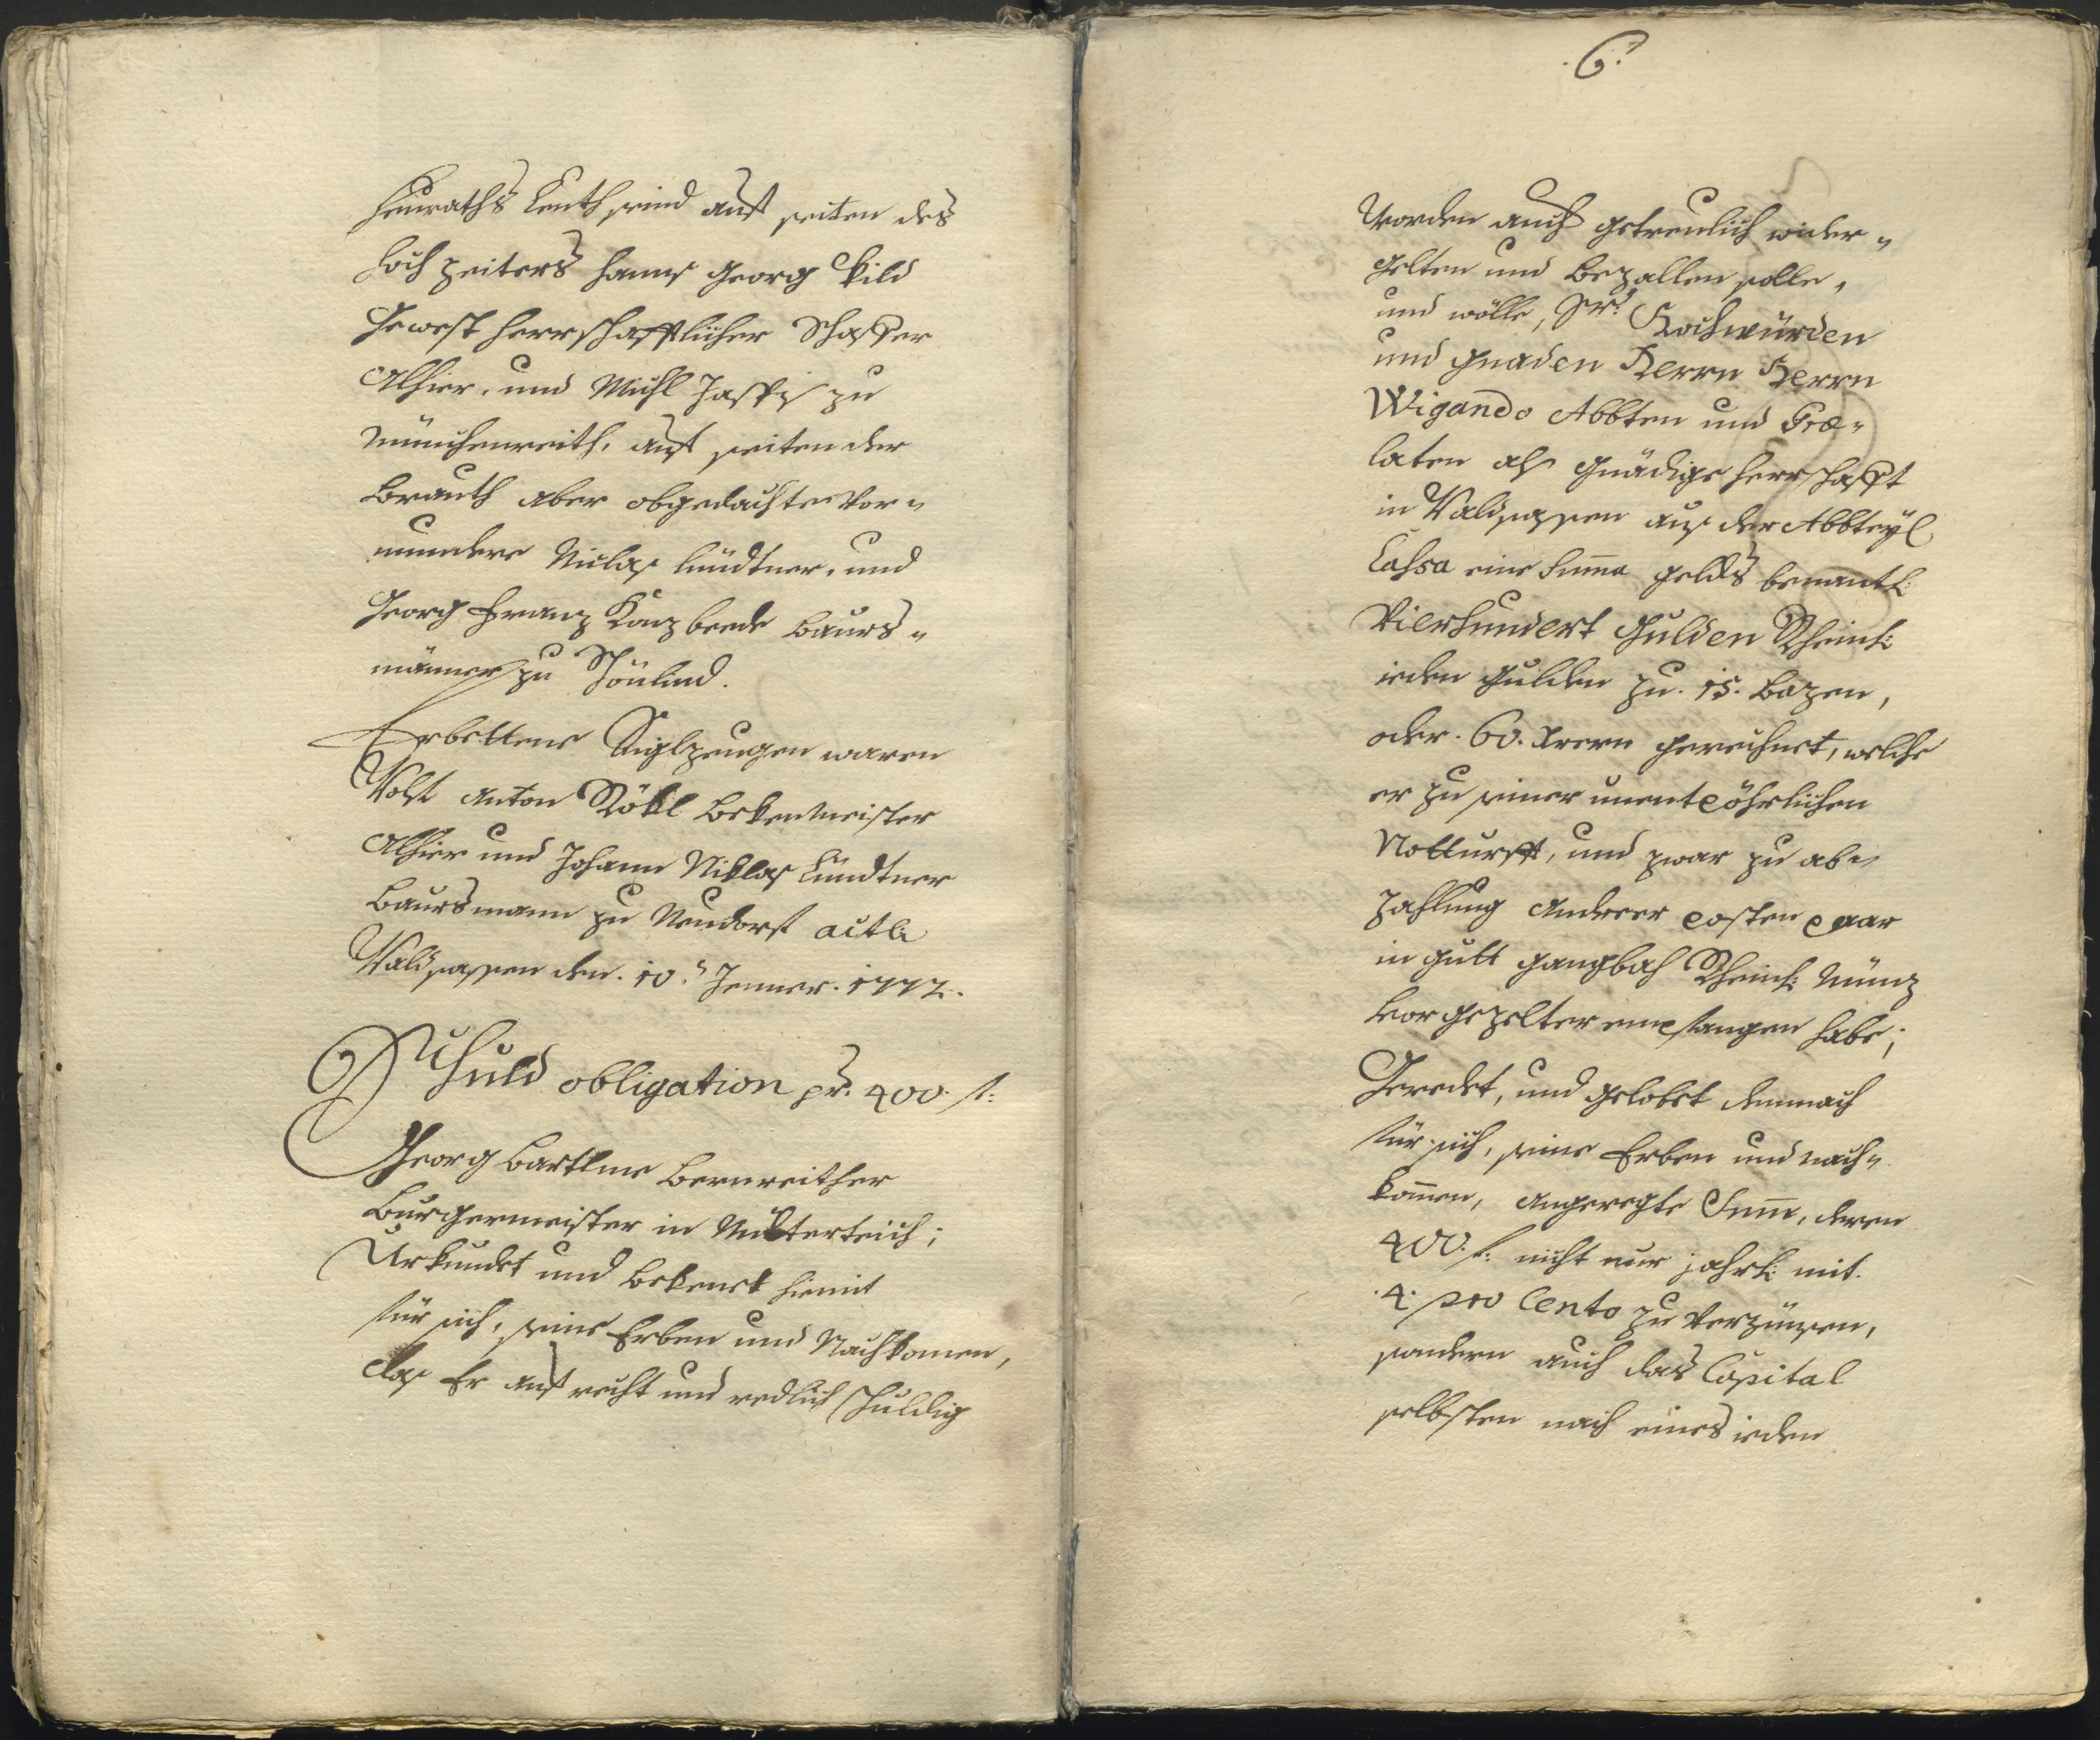 Heuraths Leuth seind auf seiten des
Hochzeiters Hanns Georg Bild
Gewest herrschafftlicher Schaffer
Alhier, und Michl Jackhs zu
Münchenreith, auf seiten der
Brauth aber obgedachte Vor=
mundere Niclas Lindtner, und
Georg Franz Konz beede Baurs=
männer zu Schönlind.
Erbettene Siglzeugen waren
Wolf Anton Stökl Bekenmeister
Alhier und Johann Niklas Lindtner
Baursmann zu Neudorf actl:
Waldsassen den 10.t Jenner. 1772.
Schuld obligation pr. 400 f:
Georg Bartlme Bernreither
Burgermeister in Mitterteich;
Urkundet und Bekenet hiemit
für sich, seine Erben und Nachkomen,
das Er auf recht und redlich schuldig
6.
Worden auch getreulich wider=
gelten und Bezallen solle,
und wölle, Sr: Hochwürden
und Gnaden Herrn Herrn
Wigando Abbten und Præ=
laten als gnädige Herrschafft
in Waldsassen aus der Abbteyl
Cassa eine Summa gelds benantl:
Vierhundert Gulden Rheinl:
ieden Gulden zu 15. Bazen,
oder 60. Xrern gerechnet, welche
er zu seiner unentpöhrlichen
Notturfft, und zwar zu ab=
zahlung anderer posten paar
in gutt gangbah Rheinl: Münz
vorgezelter empfangen habe;
Geredet, und gelobet demnach
für sich, seine Erben und nach=
komen, angeregte Sum, deren
400. f: nicht nur jahrl: mit
4. pro Cento zu verzünsen,
sondern auch das Capital
selbsten nach eines ieden